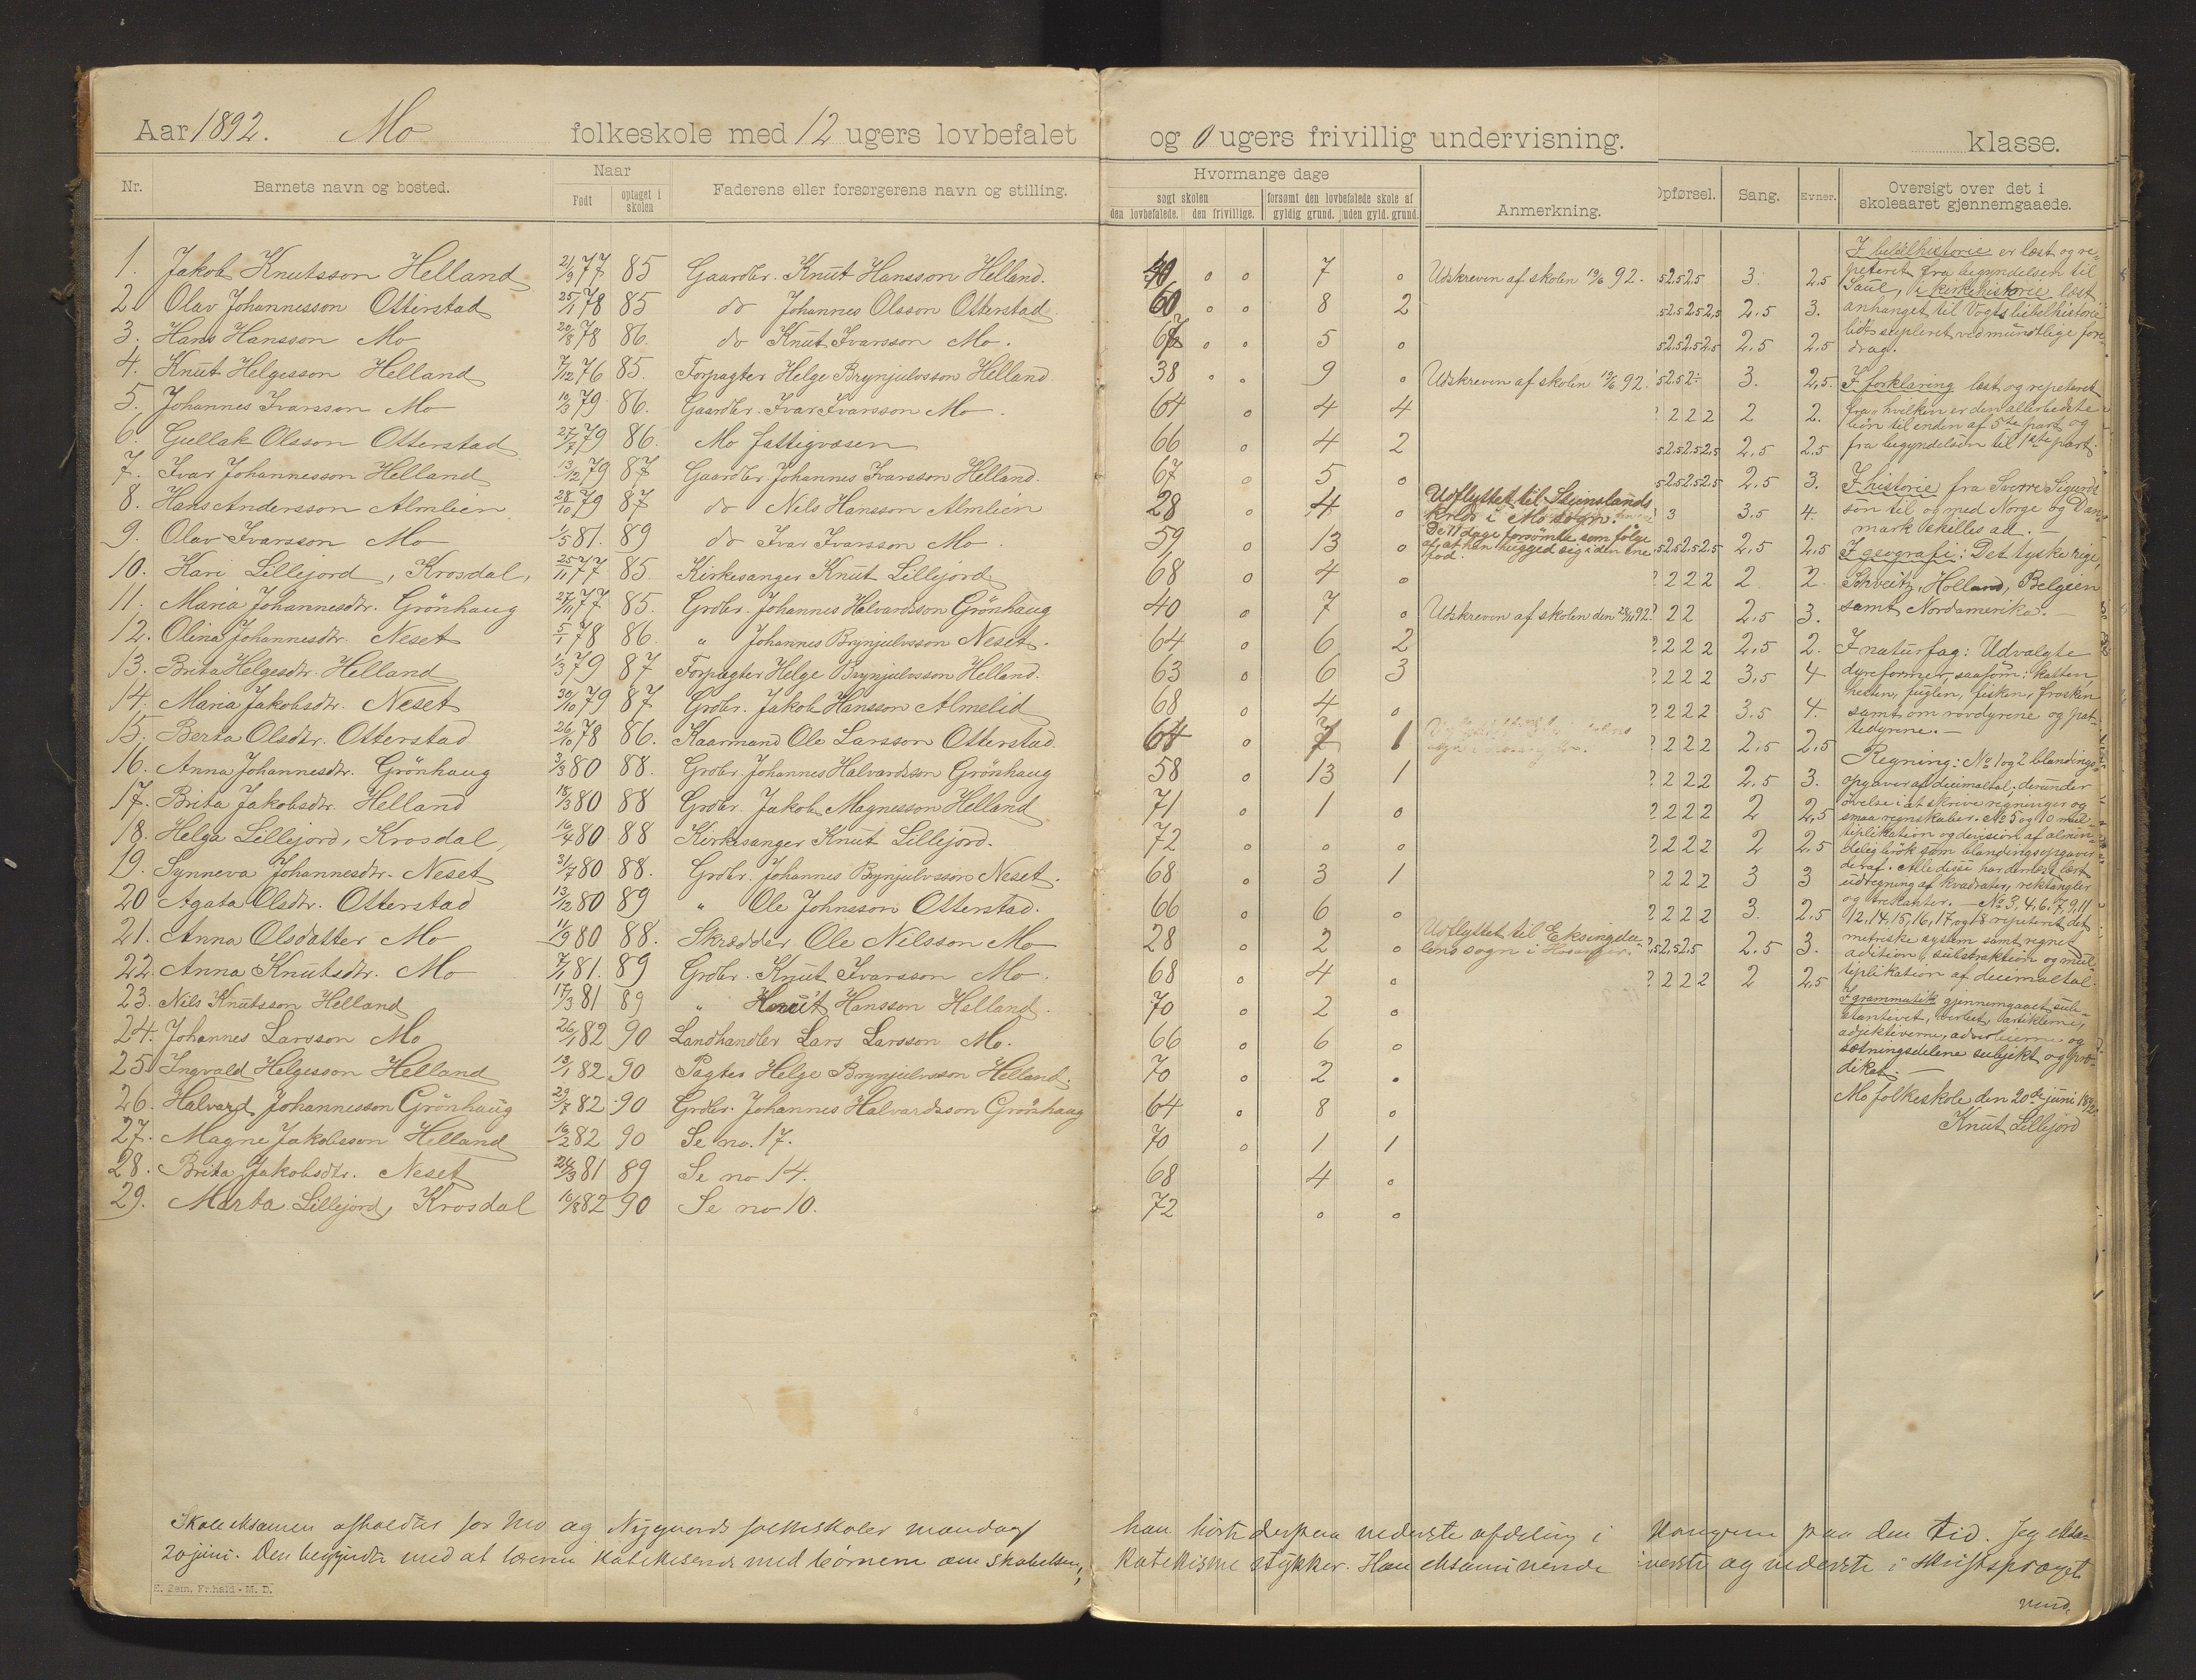 Aar 1892. Mo folkeskole med 12 ugers lovbefalet og 0 ugers frivillig undervisning. klasse.
Nr. Barnets navn og bosted. Naar Født optaget i skolen Faderens eller forsørgerens navn og stilling. Hvormange dage søgt skolen den lovbefalede. den frivillige. forsømt den lovbefalede skole af gyldig grund. uden gyld. grund. Anmerkning. Opførsel. Sang. Evner. Oversigt over det i skoleaaret gjennemgaaede.
1. Jakob Knutsson Helland 21/9 77 85 Gaardbr. Knut Hansson Helland. 40 0 0 7 0 Udskreven af skolen 19/6 92. 3. 2,5
2. Olav Johannesson Otterstad 25/1 78 85 do Johannes Olsson Otterstad. 60 0 0 8 2 2,5 3.
3. Hans Hansson Mo 20/8 78 86. do Knut Ivarsson Mo. 67 0 0 5 0 2,5 2,5
4. Knut Helgesson Helland 7/12 76 85. Forpagter Helge Brynjulvsson Helland. 38 0 0 9 0 Udskreven af skolen 19/6 92. 3. 2,5.
5. Johannes Ivarsson Mo 10/3 79 86. Gaardbr. Ivar Ivarsson Mo. 64 0 4 4 2 2 2 2 2.
6. Gullak Olsson Otterstad 27/7 79 86. Mo fattigvæsen 66 0 4 2 2,5 2.5
7. Ivar Johannesson Helland 13/12 79 87 Gaardbr. Johannes Ivarsson Helland. 67 0 5 0 2.5 3.
8. Hans Andersson Almlien 28/10 79 87 do Nils Hansson Almlien 28 0 4 0 Udflyttet til Steinslands kreds i Mo sogn. 3 3,5 4.
9. Olav Ivarsson Mo 1/5 81. 89 do Ivar Ivarsson Mo. 59 0 13 0 De 11 dage forsømte som følge af, at han hugged sig i den ene fod. 2,5 2,5
10. Kari Lillejord, Krosdal, 25/11 77 85. Kirkesanger Knut Lillejord 68 0 4 0 2 2 2 2 2.
11. Maria Johannesdtr. Grönhaug 27/11 77 85. Grdbr. Johannes Halvardsson Grönhaug 40 0 7 0 Udskreven af skolen den 28/11 92. 2 2 2,5 3.
12. Olina Johannesdtr. Neset 5/1 78 86. „ Johannes Brynjulvsson Neset. 64 0 6 2 2 2 2 2 2,5 2.
13. Brita Helgesdtr. Helland 1/3 79 87 Forpagter Helge Brynjulvsson Helland. 63 0 6 3 2 2 2 2 3,5 4
14. Maria Jakobsdtr. Neset 30/10 79 87 Grdbr. Jakob Hansson Almelid 68 0 4 0 2 2 2 2 3.5 4.
15. Berta Olsdtr. Otterstad 26/10 78 86. Kaarmand Ole Larsson Otterstad. 64 0 7 1 2 2 2 2 2,5 2,5
16. Anna Johannesdtr. Grönhaug 3/3 80 88. Grdbr. Johannes Halvardsson Grönhaug 58 0 13 1 2 2 2 2 2.5 3.
17. Brita Jakobsdtr. Helland 18/3 80 88 Grdbr. Jakob Magnesson Helland 71 0 1 0 2 2 2 2 2 2,5
18. Helga Lillejord, Krosdal, 10/4 80. 88 Kirkesanger Knut Lillejord. 72 0 0 0 2 2 2 2 2 2,5
19. Synneva Johannesdtr. Neset 31/7 80 88. Grdbr. Johannes Brynjulvsson Neset. 68 0 3 1 2 2 2 2 3 3
20 Agata Olsdtr. Otterstad 13/12 80 89 „ Ole Johnsson Otterstad. 66 0 6 0 2 2 2 2 3. 2,5
21. Anna Olsdatter Mo 11/9 80 88. Skrædder Ole Nilsson Mo 28 0 2 0 Udflyttet til Eksingdalens sogn i Hosanger. 2.5 3.
22. Anna Knutsdtr. Mo 7/1 81. 89 Grdbr. Knut Ivarsson Mo. 68 0 4 0 2 2 2 2 2 2,5
23. Nils Knutsson Helland 17/3 81 89 „ Knut Hansson Helland. 70 0 2 0
24. Johannes Larsson Mo 26/1 82 90 Landhandler Lars Larsson Mo. 66 0 6 0
25. Ingvald Helgesson Helland 13/1 82 90 Pagter Helge Brynjulvsson Helland. 70 0 2 0
26. Halvard Johannesson Grönhaug 29/7 82 90 Grdbr. Johannes Halvardsson Grönhaug 64 0 8 0
27. Magne Jakobsson Helland 10/2 82 90 Se no. 17. 70 0 1 1
28. Brita Jakobsdtr. Neset 24/3 81 89 Se no 14. 68 4 0
29. Marta Lillejord, Krosdal 10/8 82 90 Se no 10. 72 0 0
I bibelhistorie er læst og re-
peteret fra begyndelsen til
Saul, i kirkehistorie læst
anhanget til Vogts bibelhistorie
lidt supleret ved mundtlige fore-
drag.
I forklaring læst og repeteret
fra hvilken er den allerbedste
bön til enden af 5te part og
fra begyndelsen til 1ste part.
I historie fra Sverre Sigurds-
son til og med Norge og Dan-
mark skilles ad.
I geografi: Det tyske rige,
Schveitz, Holland, Belgien
samt Nordamerika.
I naturfag: Udvalgte
dyreformer, saasom: katten,
hesten, fuglen, fisken, frosken
samt om rovdyrene og pat-
tedyrene.
Regning: No 1 og 2 blandings-
opgaver af decimaltal, derunder
övelse i at skrive regninger og
smaa regnskaber. No 5 og 10 mul-
tiplikation og devision af almin-
delig brök som blandingsopgaver
deraf. Alle disse har dernæst læst
udregning af kvadrater, rektangler
og trekanter. No 3, 4, 6, 7, 9, 11
12, 14, 15, 16, 17 og 18 repeteret det
metriske system samt regnet
adition, substraktion og mul-
tiplikation af decimaltal.
I grammatik gjennemgaaet sub-
stantivet, verbet, artiklerne,
adjektiverne, adverbierne og
sætningsdelene subjekt og præ-
dikat.
Mo folkeskole den 20de juni 1892
Knut Lillejord
Skoleeksamen afholdtes for Mo og Nygaards folkeskoler mandag han hörte derpaa nederste afdeling i paa den tid. Jeg
20 juni. Den begyndte med at læreren katekiserede med börnene om Skabelsen, katekisme stykker. Han eksaminerede og nederste i
E. Sem, Fr.hald - M. D.